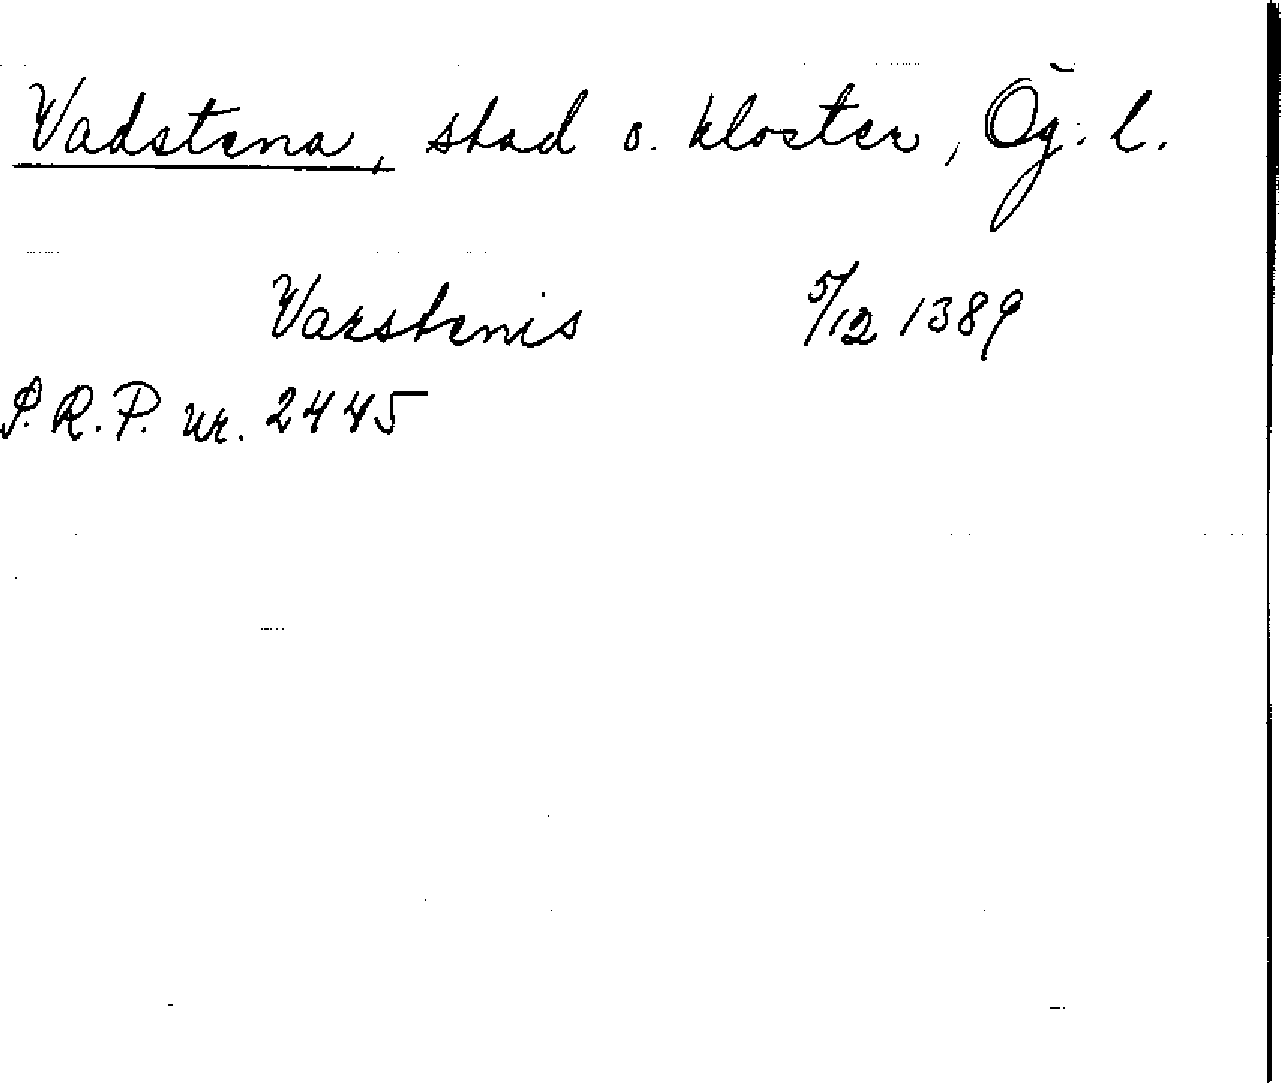 Vadstena, stad o. kloster, Ög. l.
Varstenis 5/12 1389
S.R.P. nr. 2445